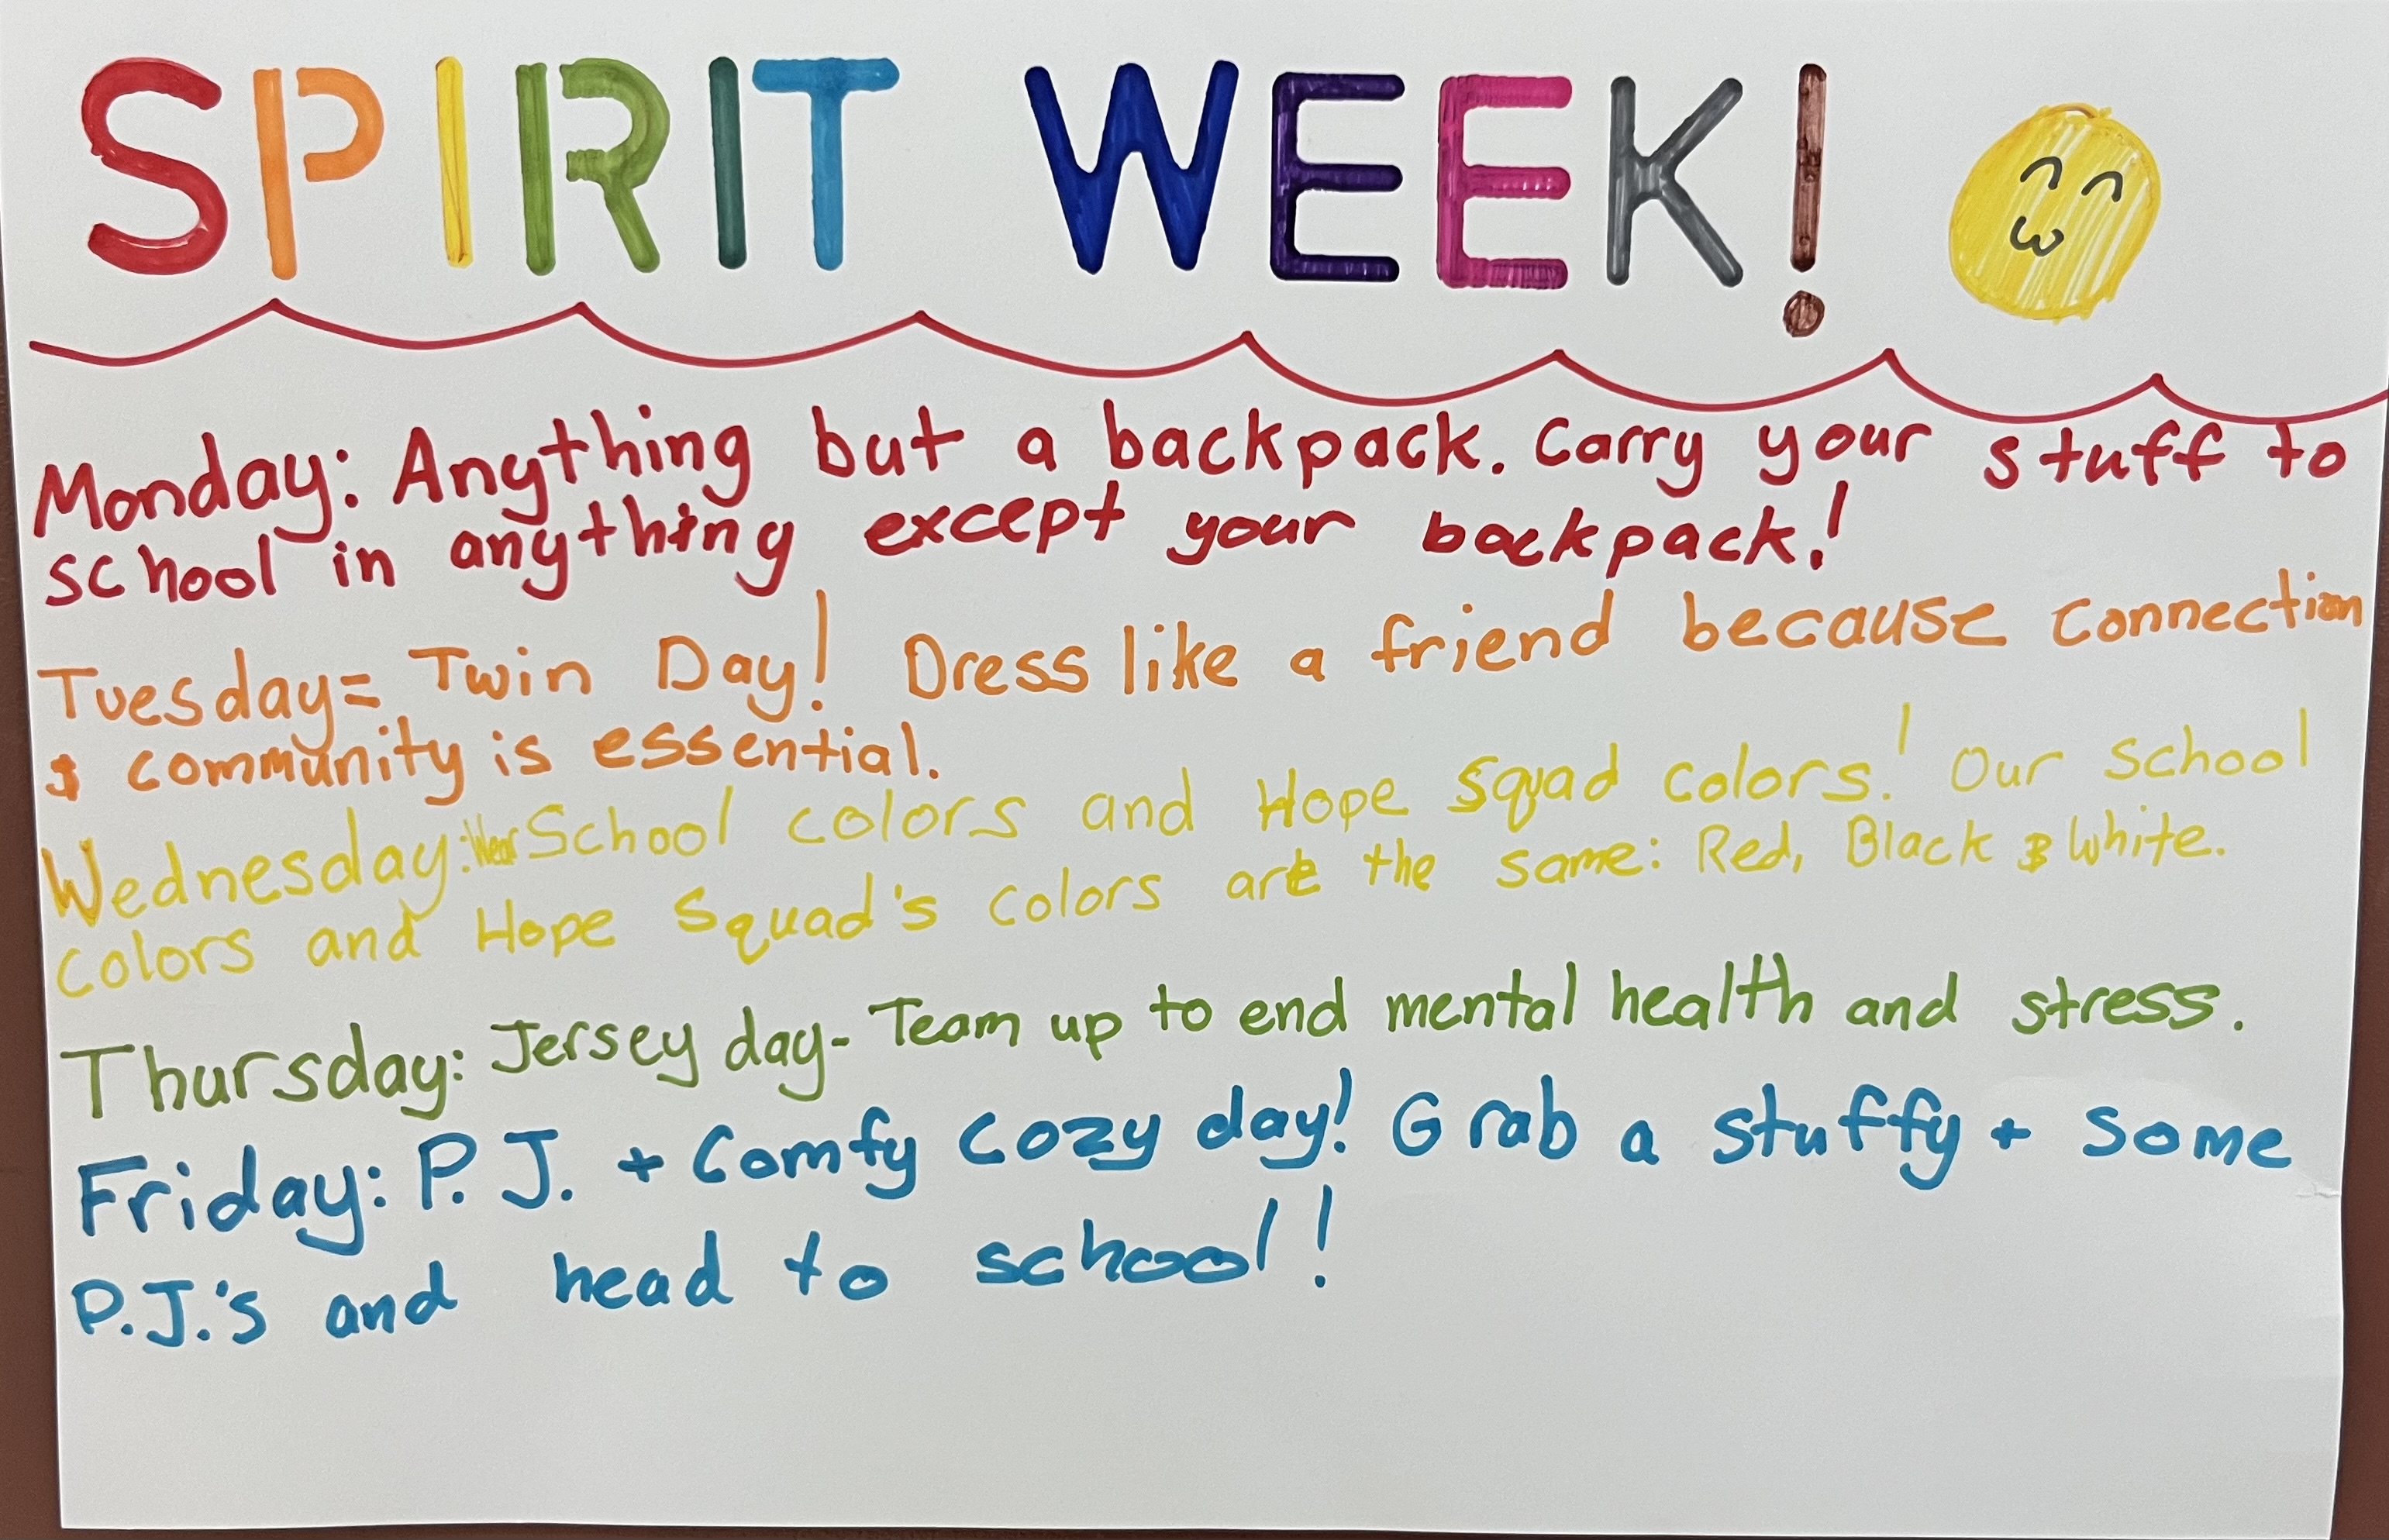 SPIRIT WEEK!
Monday: Anything but a backpack. Carry your stuff to
school in anything except your backpack!
Tuesday= Twin Day! Dress like a friend because connection
& community is essential.
Wednesday: Wear School colors and Hope Squad colors! Our school
colors and Hope Squad's colors are the same: Red, Black & White.
Thursday: Jersey day- Team up to end mental health and stress.
Friday: P.J. + Comfy cozy day! Grab a stuffy + some
P.J.'s and head to school!